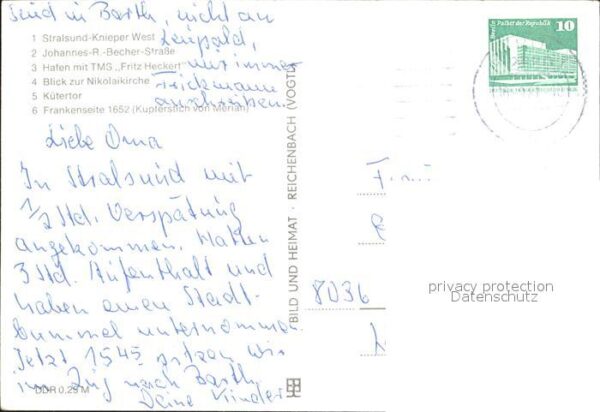 sind in Barth, nicht an
Leupold,
nur immer
Frickmann
anschreiben.
1 Stralsund-Knieper West
2 Johannes-R.-Becher-Straße
3 Hafen mit TMS „Fritz Heckert"
4 Blick zur Nikolaikirche
5 Kütertor
6 Frankenseite 1652 (Kupferstich von Merian)
Liebe Oma
In Stralsund mit
1/2 Std. Verspätung
angekommen. Hatten
3 Std. Aufenthalt und
haben einen Stadt-
bummel unternommen.
Jetzt 1545 sitzen wir
im Zug nach Barth
Deine Kinder
DDR 0,25 M
BILD UND HEIMAT · REICHENBACH (VOGTL
Berlin Palast der Republik
10
8036
privacy protection
Datenschutz